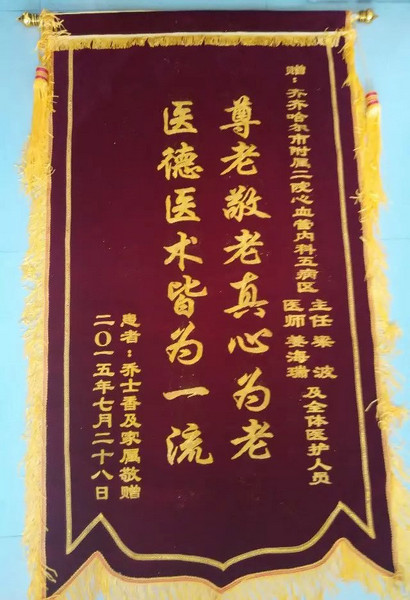 赠：齐齐哈尔市附属二院心血管内科五病区
主任 梁 波
医师 姜海瑞
及全体医护人员
尊老敬老真心为老
医德医术皆为一流
患者：乔士香及家属敬赠
二〇一五年七月二十八日